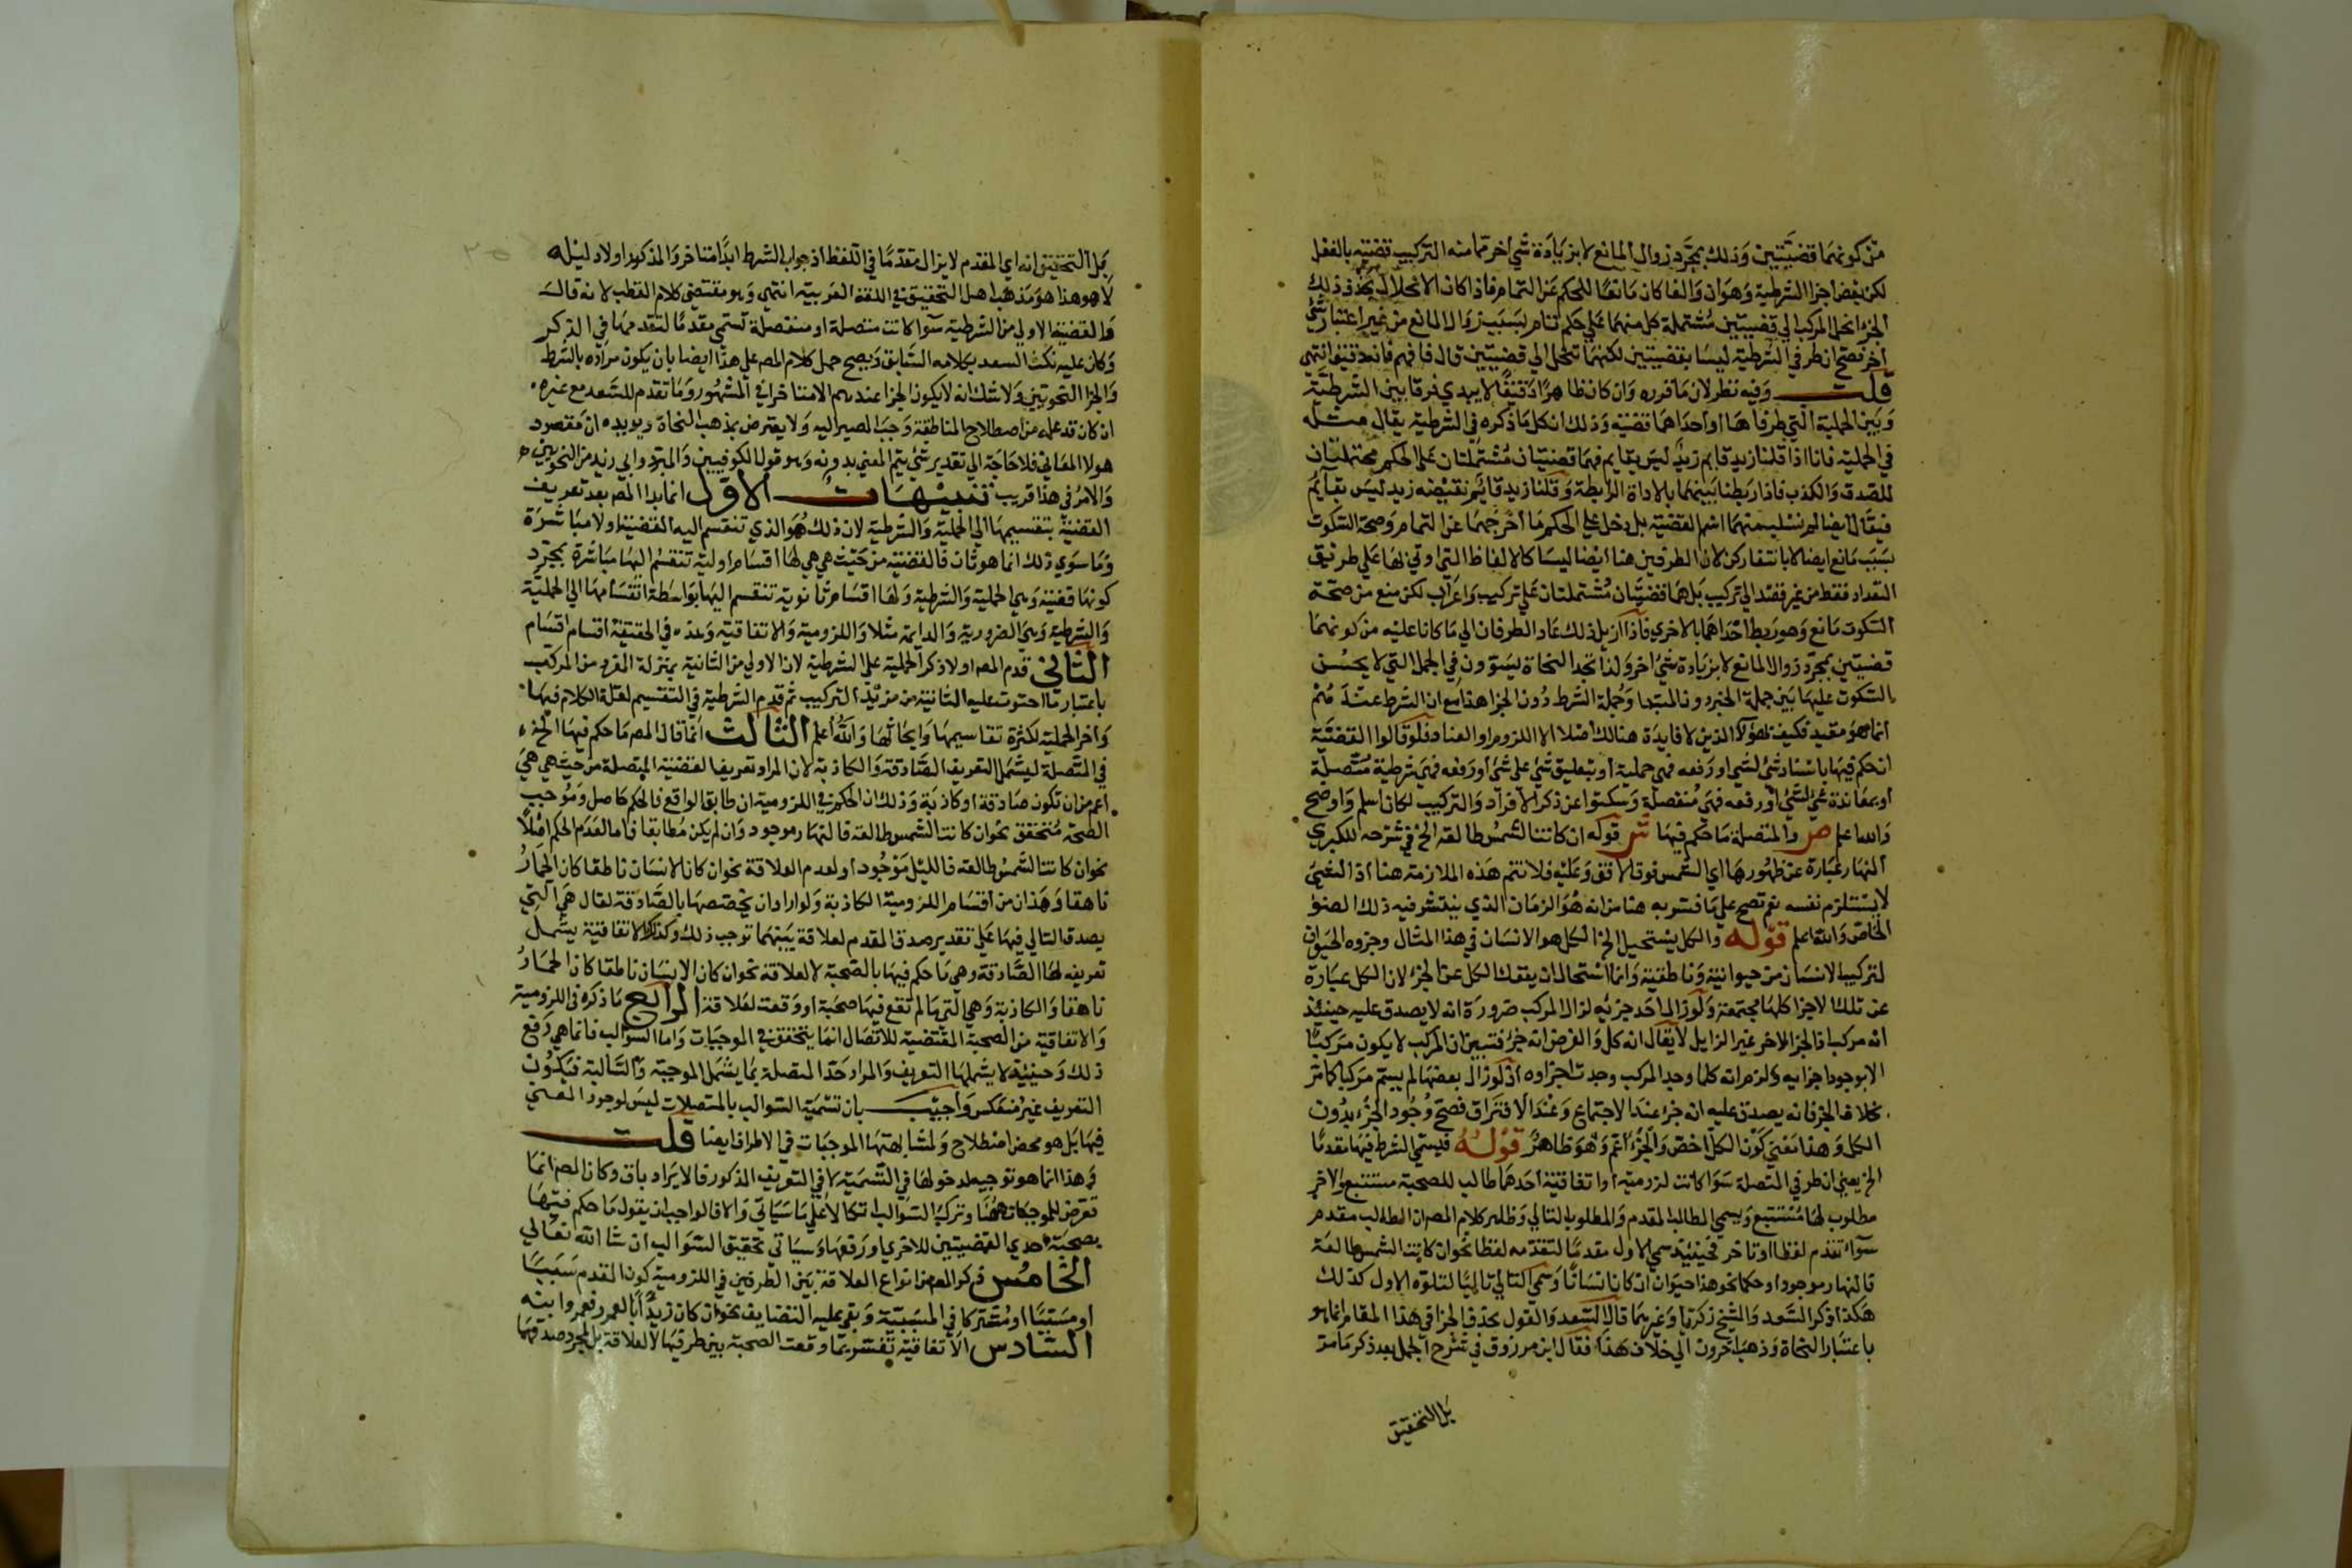 من كونهما قضيتين وذلك بمجرد زوال المانع لا بزيادة شي اخر مما منه التركيب قضيته بالفعل
لكن بعض اجزا الشرطية وهو ان والفا كان مانعا للحكم عن التمام فاذا كان الانحلال بحذف ذلك
الجزء انحل المركب الي قضيتين مشتملة كل منهما علي حكم تام بسبب زوال المانع من غير اعتبار شي
اخر فصح ان طرفي الشرطية ليسا بقضيتين لكنهما تنحل الي قضيتين قال فافهم فانه دقيق انتهي
قلت وفيه نظر لان ما قرره وان كان ظاهرا دقيقا لا يبدي فرقا بين الشرطية
وبين الحملية التي طرفاها او احداهما قضية وذلك ان كل ما ذكره في الشرطية يقال مثله
في الحملية فانا اذا قلنا زيد قايم زيد ليس بقايم فهما قضيتان مشتملتان علي الحكم محتملتان
للصدق والكذب فاذا ربطنا بينهما بالاداة الرابطة وقلنا زيد قائم نقيضه زيد ليس بقايم
فيقال ايضا لم نسلب منهما اسم القضية بل دخل علي الحكم ما اخرجهما عن التمام وصحة السكوت
بسبب مانع ايضا لا بانتفا ركن لان الطرفين هنا ايضا ليسا كالالفاظ التي اوتي لها علي طريق
التعداد فقط من غير قصد الي تركيب بل هما قضيتان مشتملتان علي تركيب واعراب لكن منع من صحة
السكوت مانع وهو ربط احداهما بالاخري فاذا ازيل ذلك عاد الطرفان الي ما كانا عليه من كونهما
قضيتين بمجرد زوال المانع لا بزيادة شي اخر ولذا تجد النحاة يسوون في الجمل التي لا يحسن
السكوت عليها بين جملة الخبر دون المبتدا وجملة الشرط دون الجزا هذا مع ان الشرط عندهم
انما هو مقيد فكيف لهؤلا الذين لا فايدة هنالك اصلا الا اللزوم او العناد فلو قالوا القضية
ان حكم فيها باسناد شي لشي او رفعه فهي حملية او بتعليق شي علي شي او رفعه فهي شرطية متصلة
او بمعاندة شي لشي او رفعه فهي منفصلة وسكتوا عن ذكر الافراد والتركيب لكان اسلم واوضح
والله اعلم ص والمتصلة ما حكم فيها ش قوله ان كانت الشمس طالعة الخ في شرحه للكبري
النهار عبارة عن ظهورها اي الشمس فوق الافق وعليه فلا تتم هذه الملازمة هنا اذ الشي
لا يستلزم نفسه نعم تصح علي ما فسر به هنا من انه هو الزمان الذي ينتشر فيه ذلك الضو
الخاص والله اعلم قوله والكل يستحيل الخ الكل هو الانسان في هذا المثال وجزوه الحيوان
لتركيب الانسان من حيوانية وناطقية وانما استحال ان ينفك الكل عن الجزء لان الكل عبارة
عن تلك الاجزا كلها مجتمعة ولو زال احد جزئيه لزال المركب ضرورة انه لا يصدق عليه حينئذ
انه مركب اذ الجزء الاخر غير الزايل لا يقال انه كل والفرض انه جزء فتبين ان المركب لا يكون مركبا
الا بوجود اجزايه ولزم انه كلما وجد المركب وجدت اجزاوه اذ لو زال بعضها لم يسم مركبا كما مر
بخلاف الجزء فانه يصدق عليه انه جزء عند الاجتماع وعند الافتراق فصح وجود الجزء بدون
الكل وهذا معني كون الكل اخص والجزء اعم وهو ظاهر قوله فيسمي الشرط فيها مقدما
الخ يعني ان طرفي المتصلة سوا كانت لزومية او اتفاقية احدهما طالب للصحبة مستتبع والاخر
مطلوب لها مستتبع ويسمي الطالب المقدم والمطلوب التالي وظاهر كلام المص ان الطالب مقدم
سوآ تقدم لفظا او تاخر فحينئذ سمي الاول مقدما لتقدمه لفظا نحو ان كانت الشمس طالعة
فالنهار موجود او حكما نحو هذا حيوان ان كان انسانا وسمي التالي تاليا لتلوه الاول كذلك
هكذا ذكر السعد والشيخ زكريا وغيرهما قال السعد والقول بحذف الجزا في هذا المقام انما هو
باعتبار النحاة وذهب اخرون الي خلاف هذا فقال ابن مرزوق في شرح الجمل بعد ذكر ما مر
بل التحقيق
بل التحقيق انه اي المقدم لا يزال متقدما في اللفظ اذ جواب الشرط ابدا متاخر والمذكور اولا دليله
لا هو هذا هو مذهب اهل التحقيق في اللغة العربية انتهي وهو مقتضي كلام القطب لانه قال
والقضية الاولي من الشرطية سوا كانت متصلة او منفصلة تسمي مقدما لتقدمها في الذكر
وكان عليه نكت السعد بكلامه السابق ويصح حمل كلام المص علي هذا ايضا بان يكون مراده بالشرط
والجزا النحويين ولا شك انه لا يكون الجزا عندهم الا متاخرا في المشهور وما تقدم للسعد مع غيره
ان كان قد علمه من اصطلاح المناطقة وجب المصير اليه ولا يعترض بمذهب النحاة ويويده ان مقصود
هولا المعاني فلا حاجة الي تقدير شي يتم المعني بدونه وهو قول الكوفيين والمبرد وابي زيد من النحويين
والامر في هذا قريب تنبيهات الاول انما بدا المص بعد تعريف
القضية بتقسيمها الي الحملية والشرطية لان ذلك هو الذي تنقسم اليه القضية اولا مباشرة
وما سوي ذلك انما هو ثان فالقضية من حيث هي هي لها اقسام اولية تنقسم اليها مباشرة بمجرد
كونها قضية وهي الحملية والشرطية ولها اقسام ثانوية تنقسم اليها بواسطة انقسامها الي الحملية
والشرطية وهي الضرورية والدايمة مثلا واللزومية والاتفاقية وهذه في الحقيقة اقسام اقسام
الثاني قدم المص اولا ذكر الحملية علي الشرطية لان الاولي من الثانية بمنزلة المفرد من المركب
باعتبار ما احتوت عليه الثانية من مزيد التركيب ثم قدم الشرطية في التقسيم لقلة الكلام فيها
واخر الحملية لكثرة تقاسيمها وابحاثها والله اعلم الثالث انما قال المص ما حكم فيها الخ
في المتصلة ليشمل التعريف الصادقة والكاذبة لان المراد تعريف القضية المتصلة من حيث هي هي
اعم من ان تكون صادقة او كاذبة وذلك ان الحكم في اللزومية ان طابق الواقع فالحكم حاصل وموجب
الصحة متحقق نحو ان كانت الشمس طالعة فالنهار موجود وان لم يكن مطابقا فاما لعدم الحكم اصلا
نحو ان كانت الشمس طالعة فالليل موجود او لعدم العلاقة نحو ان كان الانسان ناطقا كان الحمار
ناهقا وهذان من اقسام اللزومية الكاذبة ولو اراد ان يخصها بالصادقة لقال هي التي
يصدق التالي فيها علي تقدير صدق المقدم لعلاقة بينهما توجب ذلك وكذلك الاتفاقية يشمل
تعريفه لها الصادقة وهي ما حكم فيها بالصحبة لا لعلاقة نحو ان كان الانسان ناطقا كان الحمار
ناهقا والكاذبة وهي التي لم تقع فيها صحبة او وقعت لعلاقة الرابع ما ذكره في اللزومية
والاتفاقية من الصحبة المقتضية للاتصال انما يتحقق في الموجبات واما السوالب فانما هي رفع
ذلك وحينئذ لا يشملها التعريف والمراد حد المتصلة بما يشمل الموجبة والسالبة فيكون
التعريف غير منعكس واجيب بان تسمية السوالب بالمتصلات ليس لوجود المعني
فيها بل هو محض اصطلاح ولمشابهتها الموجبات في الاطراف ايضا قلت
وهذا انما هو توجيه لدخولها في التسمية لا في التعريف المذكور فالايراد باق وكان المص انما
تعرض للموجبات هنا وترك السوالب اتكالا علي ما سياتي والا فالواجب ان يقول ما حكم فيها
بصحبة احدي القضيتين للاخري او رفعها وسياتي تحقيق السوالب ان شا الله تعالي
الخامس ذكر المص من انواع العلاقة بين الطرفين في اللزومية كون المقدم سببا
او مسببا او مشتركا في المسببية وبقي عليه التضايف نحو ان كان زيد ابا لعمرو فعمرو ابنه
السادس الاتفاقية تفسر بما وقعت الصحبة بين طرفيها لا لعلاقة بل لمجرد صدقهما